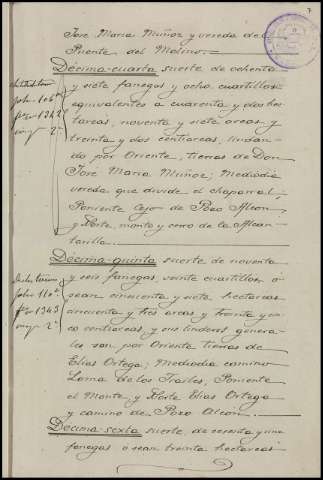 7
José Maria Muñoz y vereda del
Puente del Molino.
Décima-cuarta suerte de ochenta
y siete fanegas y ocho cuartillos
equivalentes á cuarenta y dos hec-
táreas, noventa y siete areas y
treinta y dos centiareas, lindan-
do por Oriente, tierras de Don
José Maria Muñoz; Mediodia
vereda que divide el chaparral;
Poniente Cejo de Pozo Alcon,
y Norte, monte y cerro de la Alcan-
tarilla.
folio 106
1342
2ª
Décima-quinta suerte de noventa
y seis fanegas, veinte cuartillos ó
sean cincuenta y siete hectareas
cincuenta y tres areas y treinta y cin-
co centiareas y sus linderos genera-
les son por Oriente tierras de
Elias Ortega; Mediodia camino
Loma de los Frailes, Poniente
el Monte y Norte Elias Ortega
y camino de Pozo Alcon.
folio 110
1343
2ª
Décima-sexta suerte, de sesenta y una
fanegas ó sean treinta hectareas